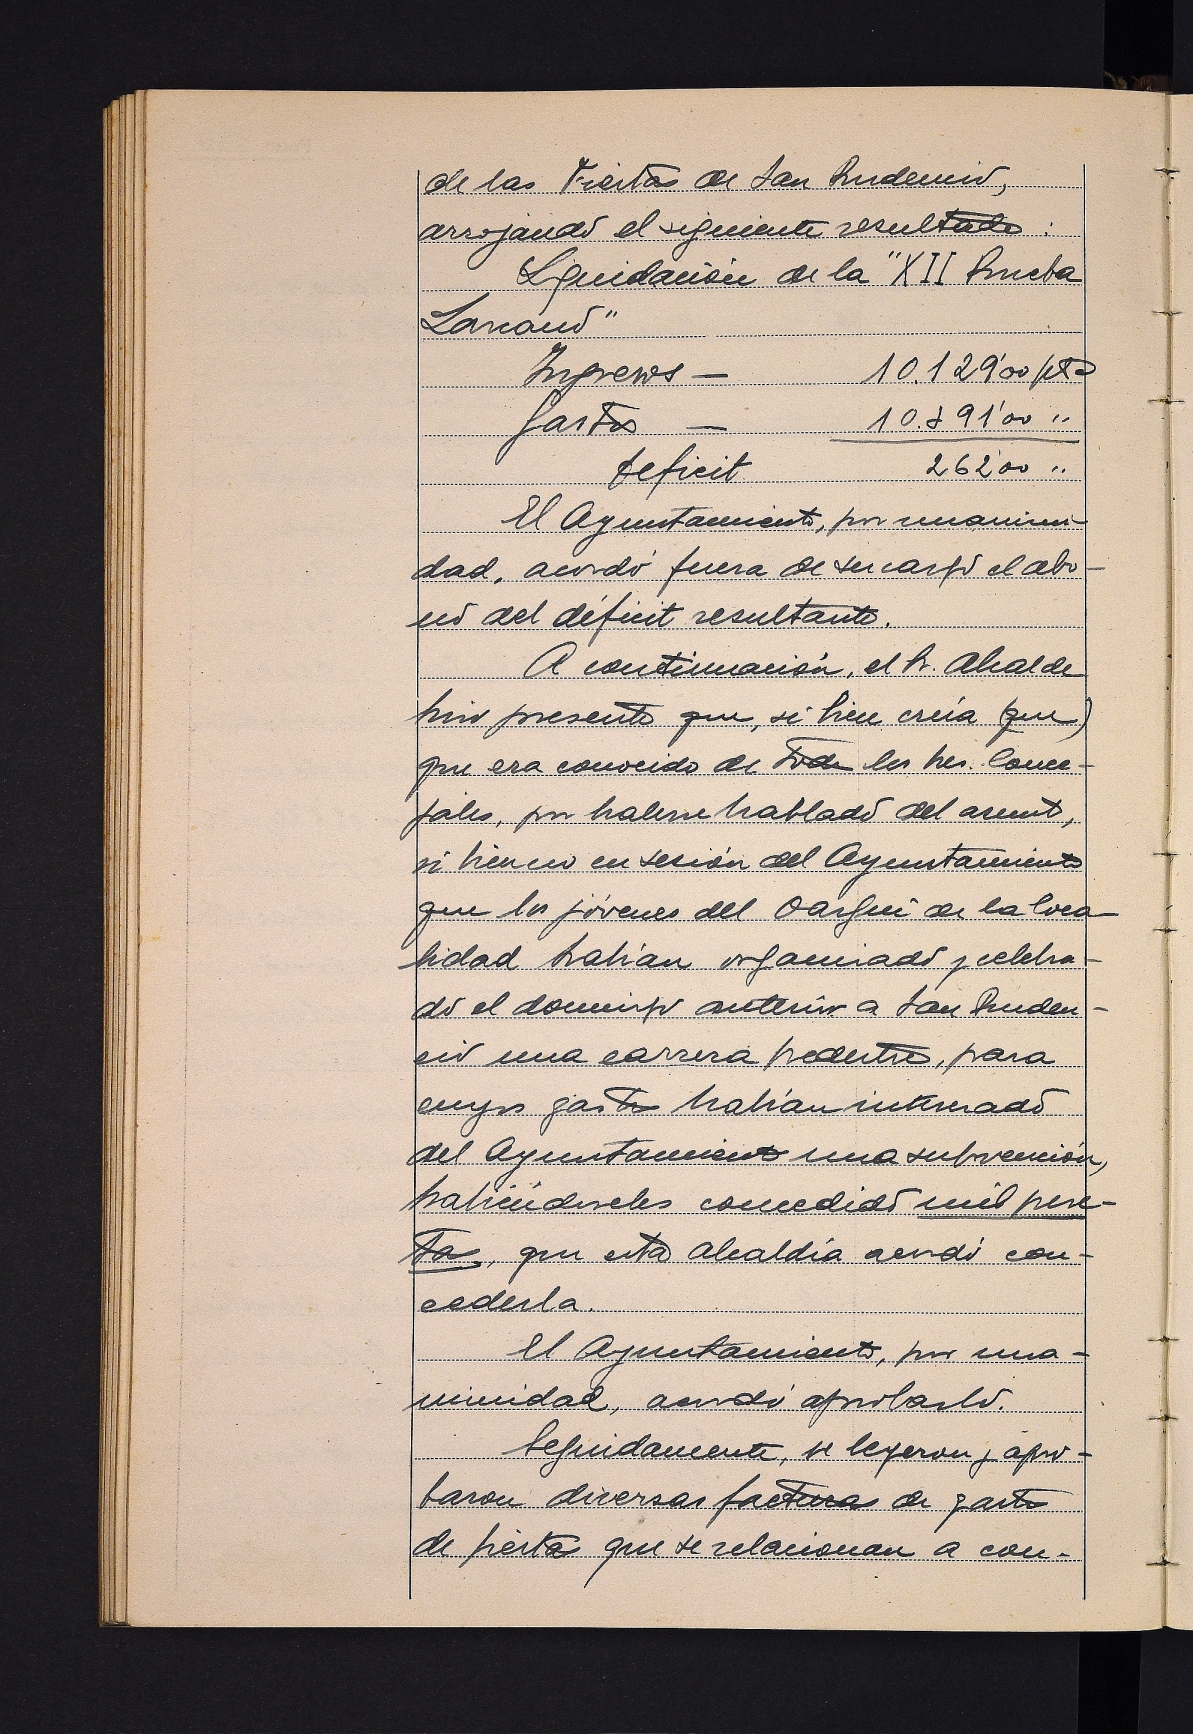 de las Fiestas de San Prudencio,
arrojando el siguiente resultado :
Liquidación de la "XII Prueba
Loncano"
Ingresos — 10.129'00 pts
Gastos — 10.391'00 "
Deficit 262'00 "
El Ayuntamiento, por unanimi-
dad, acordó fuera de su cargo el abo-
no del déficit resultante.
A continuación, el Sr. Alcalde
hizo presente que, si bien creía (que)
que era conocido de todos los Sres. Conce-
jales, por haberse hablado del asunto,
si bien no en sesión del Ayuntamiento
que los jóvenes del Oargui de la loca-
lidad habían organizado y celebra-
do el domingo anterior a San Pruden-
cio una carrera pedestre, para
cuyos gastos habían interesado
del Ayuntamiento una subvención,
habiéndoseles concedido mil pese-
tas, que esta Alcaldía acordó con-
cederla.
El Ayuntamiento, por una-
nimidad, acordó aprobarlo.
Seguidamente, se leyeron y apro-
baron diversas facturas de gastos
de fiestas que se relacionan a con-